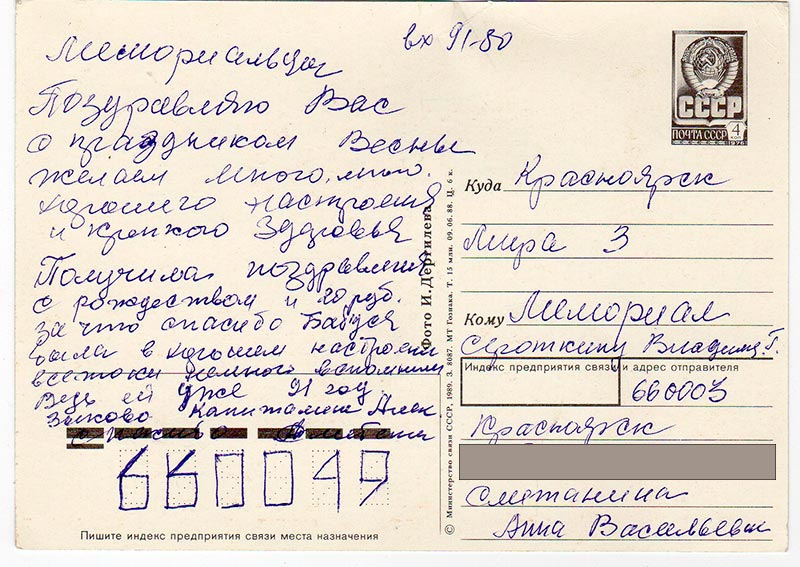 вх 91-80
Мемориальцы
Поздравляю Вас
с праздником Весны
желаем много, много
хорошего настроения
и крепкого Здоровья
Получила поздравления
с рождеством и 20 руб.
за что спасибо Бабуся
была в хорошем настроении
всетоки немного вспомнили
Ведь ей уже 91 год.
Зыково Капитолине
660049
Пишите индекс предприятия связи места назначения
Фото И. Дергилева
© Министерство связи СССР, 1989. З. 8087. МТ Гознака. Т. 15 млн. 09.06.88. Ц. 6 к.
СССР
ПОЧТА СССР 4 КОП
1976
Куда Красноярск
Мира 3
Кому Мемориал
Сиротинину Владим. Г.
Индекс предприятия связи и адрес отправителя
660003
Красноярск
Сметанина
Анна Васильевна